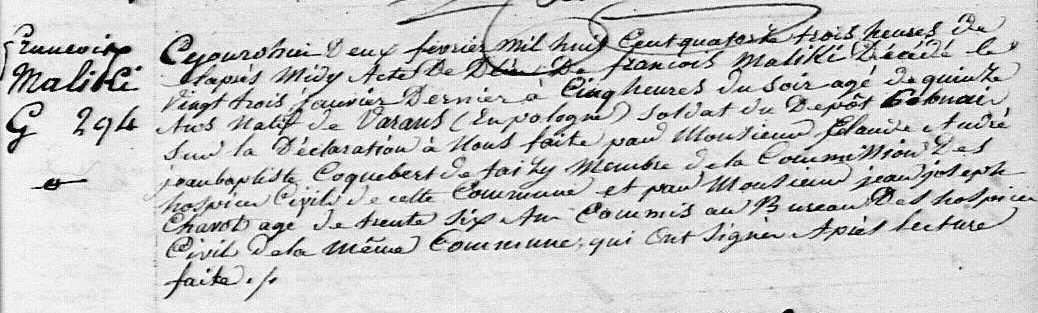 francois
Maliki
G 294
Cejourdhui Deux février mil huit Cent quatorze trois heures de
lapres Midy Acte De Décès De francois Maliki Décédé le
Vingt trois janvier Dernier à Cinq heures du Soir agé de quinze
Ans Natif de Varans (En pologne) Soldat du Depôt Polonais
Sur la Déclaration à Nous faite par Monsieur Claude André
jean baptiste Coquebert de taizy Membre de la Commission Des
hospices Civils de cette Commune et par Monsieur jean joseph
Chavot agé de trente Six Ans Commis au Bureau Des hospices
Civil de la même Commune, qui Ont Signer Après lecture
faite ./.